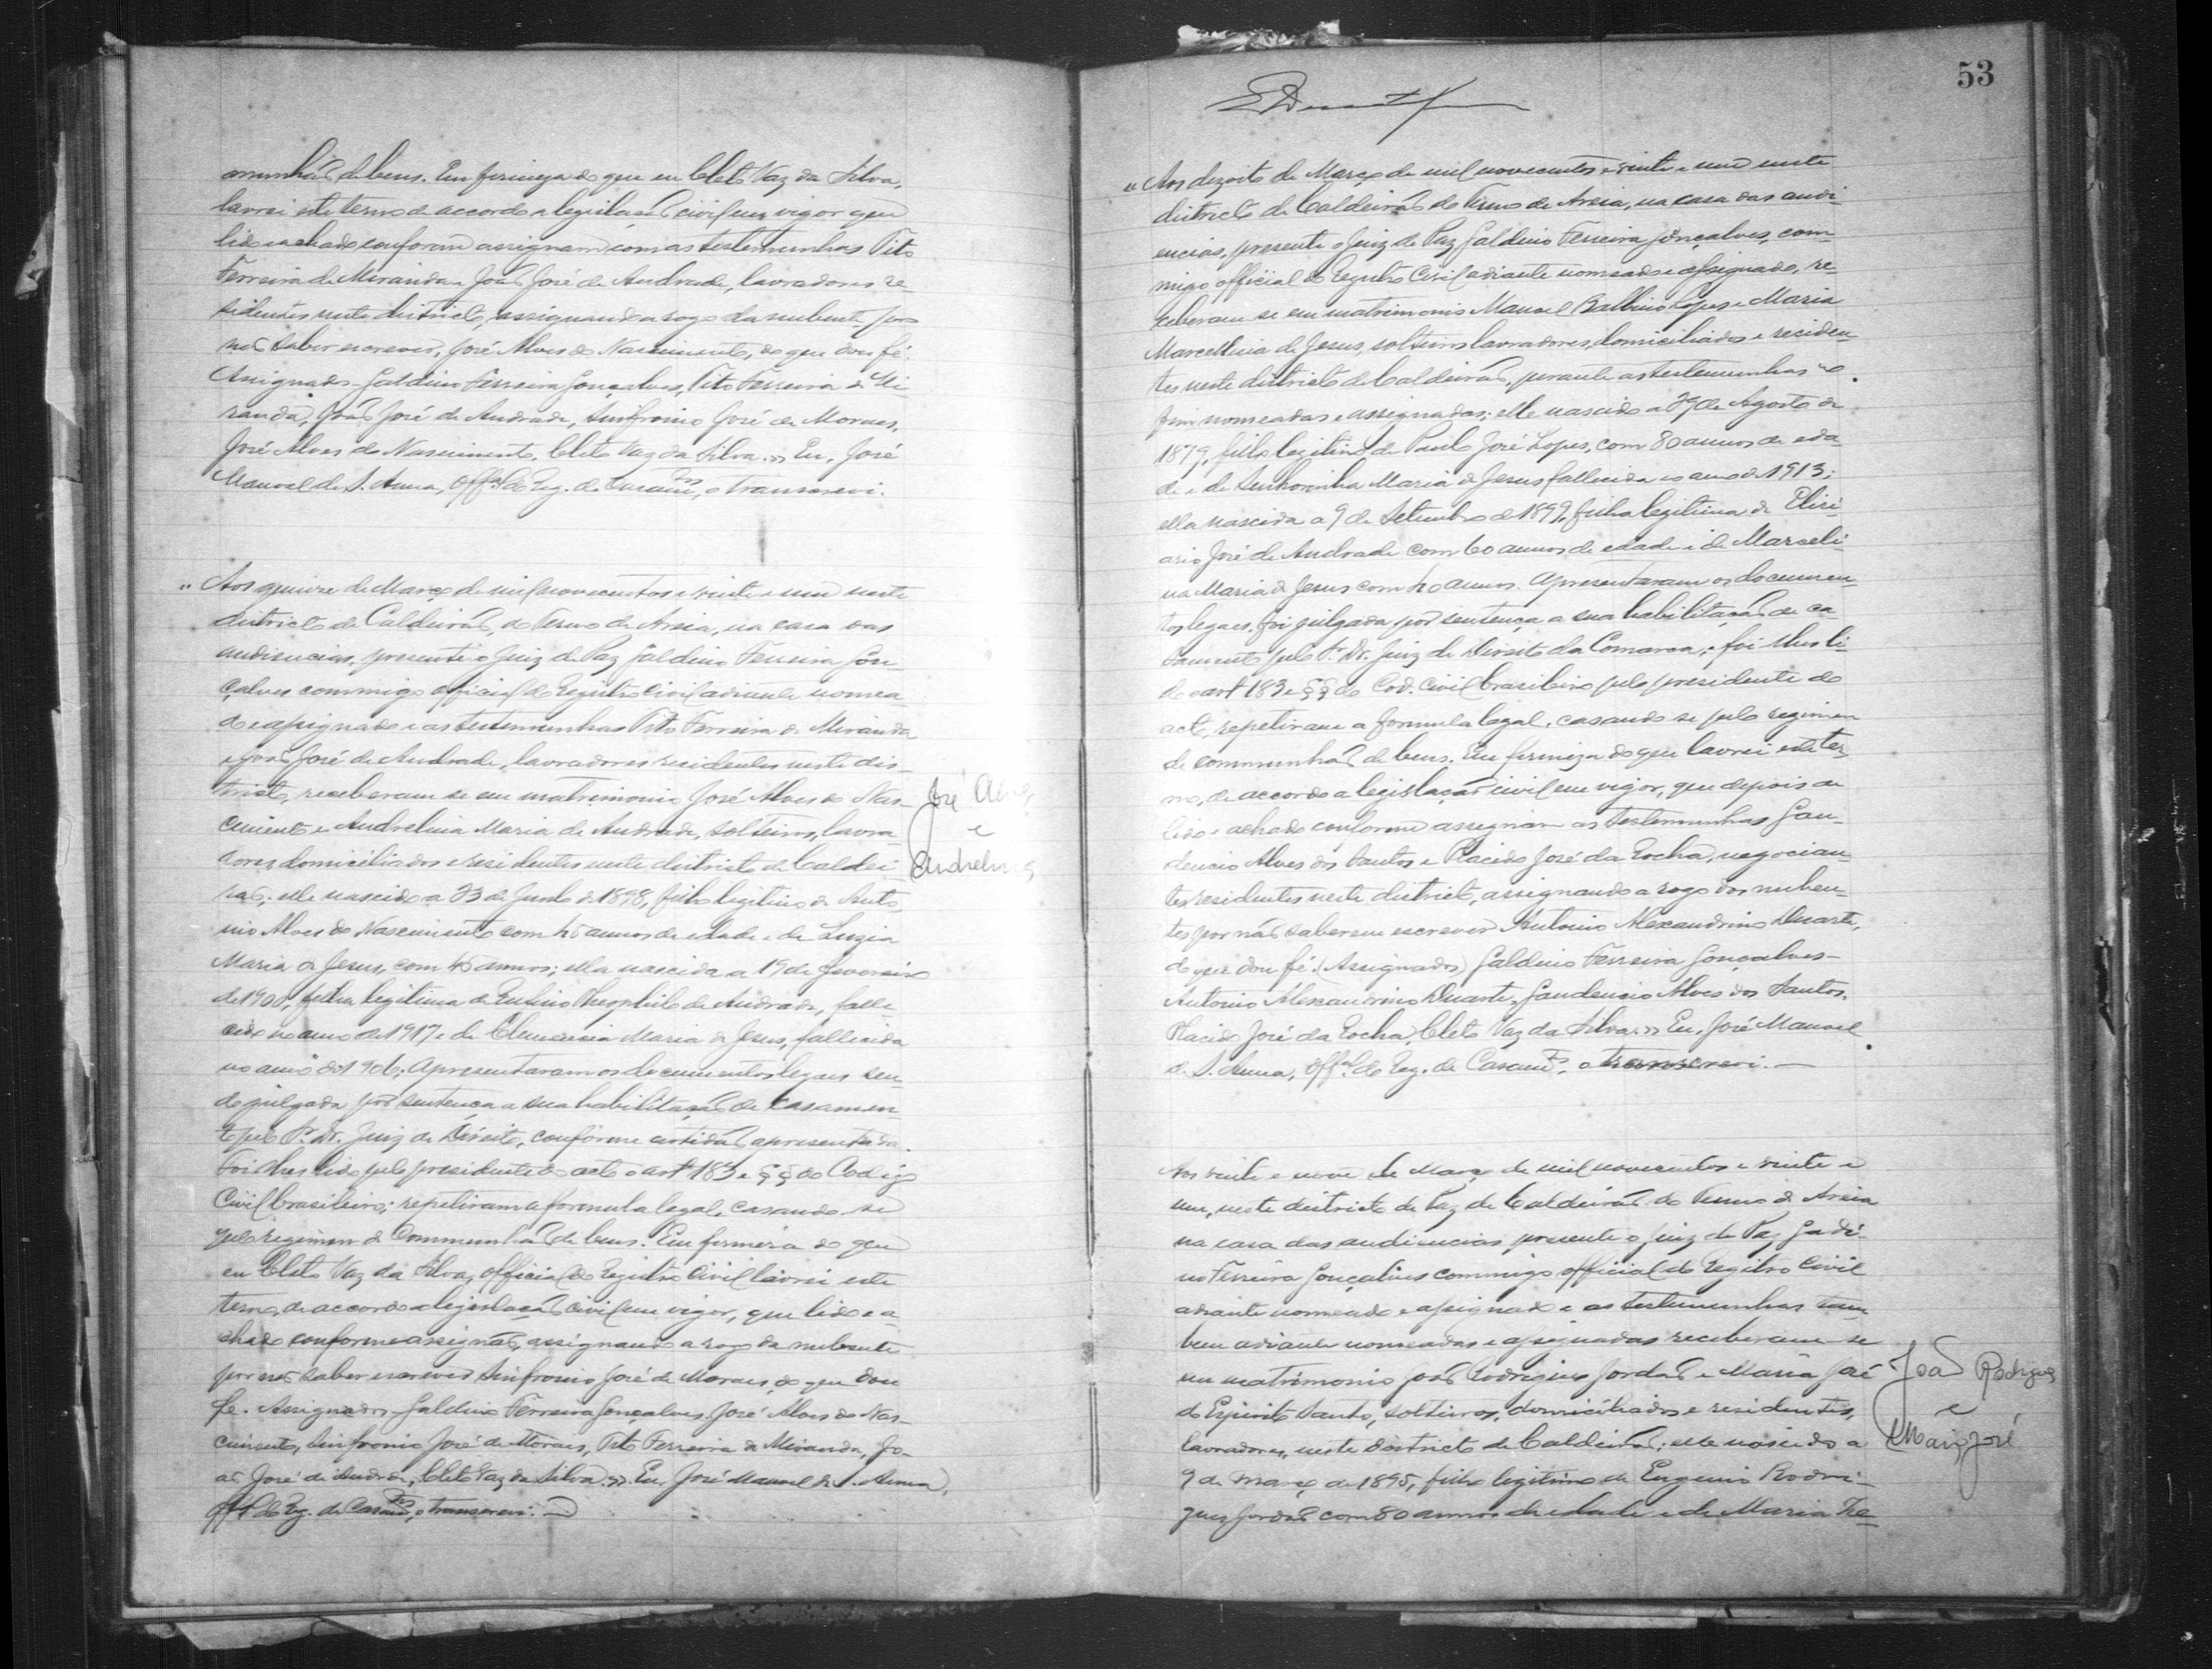 ommunhão de bens. Em firmeza do que eu Cleto Vaz da Silva,
lavrei este termo de accordo a legislação civil em vigor que
lido e achado conforme assignam com as testemunhas Tito
Ferreira de Miranda e João José de Andrade, lavradores re
sidentes neste districto, assignando a rogo da nubente por
não saber escrever, José Alves do Nascimento, do que dou fé.
Assignados - Galdino Ferreira Gonçalves, Tito Ferreira de Mi
randa, João José de Andrade, Sinfronio José de Moraes,
José Alves do Nascimento, Cleto Vaz da Silva. » Eu, José
Manoel de S. Anna, Off.al do Reg. de Casam.tos, o transcrevi.
" Aos quinze de Março de mil novecentos e vinte e um neste
districto de Caldeirão, do Termo de Areia, na casa das
audiencias, presente o Juiz de Paz Galdino Ferreira Gon
çalves commigo official do Registro Civil adiante nomea
do e assignado e as testemunhas Tito Ferreira de Miranda
e João José de Andrade, lavradores residentes neste dis-
tricto, receberam se em matrimonio José Alves do Nas-
cimento e Andrelina Maria de Andrade, solteiros, lavra-
dores, domiciliados e residentes neste districto de Caldei-
rão; elle nascido a 23 de Junho de 1898, filho legitimo de Anto-
nio Alves do Nascimento com annos de edade e de Luzia
Maria de Jesus, com annos; ella nascida a 19 de Fevereiro
de filha legitima de Theophilo de Andrade, falle
cido no anno de 1917 e de Clemencia Maria de Jesus, fallecida
no anno de 1906; Apresentaram os documentos legaes sen-
do julgada por sentença a sua habilitação de Casamen
to pelo S.r Dr. Juiz de Direito, conforme certidão apresentada.
Foi lhes lido pelo presidente do acto o art 183 e §§ do Codigo
Civil brasileiro; repetiram a formula legal, casando-se
pelo regimen de Communhão de bens. Em firmeza do que
eu Cleto Vaz da Silva, official do Registro Civil lavrei este
termo, de accordo a legislação civil em vigor, que lido e a-
chado conforme assignão, assignando a rogo da nubente
por não saber escrever Sinfronio José de Moraes, do que dou
fé. Assignados - Galdino Ferreira Gonçalves, José Alves do Nas-
cimento, Sinfronio José de Moraes, Tito Ferreira de Miranda, Jo-
ão José de Andrade, Cleto Vaz da Silva. » Eu, José Manoel de S. Anna,
Off.al do Reg. de Casam.tos, o transcrevi. —
José Alves
e
Andrelina
53
" Aos dezoito de Março de mil novecentos e vinte e um neste
districto de Caldeirão do Termo de Areia, na casa das audi
encias, presente o Juiz de Paz Galdino Ferreira Gonçalves, com-
migo official do Registro Civil adiante nomeado e assignado, re-
ceberam se em matrimonio Manoel Balbino Lopes e Maria
Marcellina de Jesus, solteiros lavradores, domiciliados e residen
tes neste districto de Caldeirão, perante as testemunhas ao
fim nomeadas e assignadas; elle nascido a 29 de Agosto de
1879, filho legitimo de Paulo José Lopes, com 80 annos de eda-
de e de Senhorinha Maria de Jesus fallecida no anno de 1913;
ella nascida a 9 de Setembro de 1899, filha legitima de Elisi-
ario José de Andrade com 60 annos de edade e de Marceli-
na Maria de Jesus com annos. Apresentaram os documen-
tos legaes, foi julgada por sentença a sua habilitação de ca-
samento pelo S.r Dr. Juiz de Direito da Comarca; foi lhes li-
do o art 183 e §§ do Cod. Civil brasileiro pelo presidente do
acto, repetiram a formula legal, casando se pelo regimen
de communhão de bens. Em firmeza do que lavrei este ter-
mo, de accordo a legislação civil em vigor, que depois de
lido e achado conforme assignam as testemunhas Gau-
dencio Alves dos Santos e Placido José da Rocha, negocian-
tes residentes neste districto, assignando a rogo dos nuben-
tes por não saberem escrever Antonio Alexandrino Duarte,
do que dou fé. (Assignados) Galdino Ferreira Gonçalves -
Antonio Alexandrino Duarte, Gaudencio Alves dos Santos.
Placido José da Rocha, Cleto Vaz da Silva. » Eu, José Manoel
de S. Anna, Off.al do Reg. de Casam.tos, o transcrevi. —
Aos vinte e nove de Março de mil novecentos e vinte e
um, neste districto de Paz de Caldeirão do Termo de Areia
na casa das audiencias presente o Juiz de Paz Galdi-
no Ferreira Gonçalves commigo official do Registro Civil
adiante nomeado e assignado e as testemunhas tam-
bem adiante nomeadas e assignadas receberam-se
em matrimonio João Rodrigues Jordão e Maria José
do Espirito Santo, solteiros, domiciliados e residentes,
lavradores, neste districto de Caldeirão; elle nascido a
9 de março de 1895, filho legitimo de Eugenio Rodri-
gues Jordão com 80 annos de edade e de Maria
João Rodrigues
e
Maria José